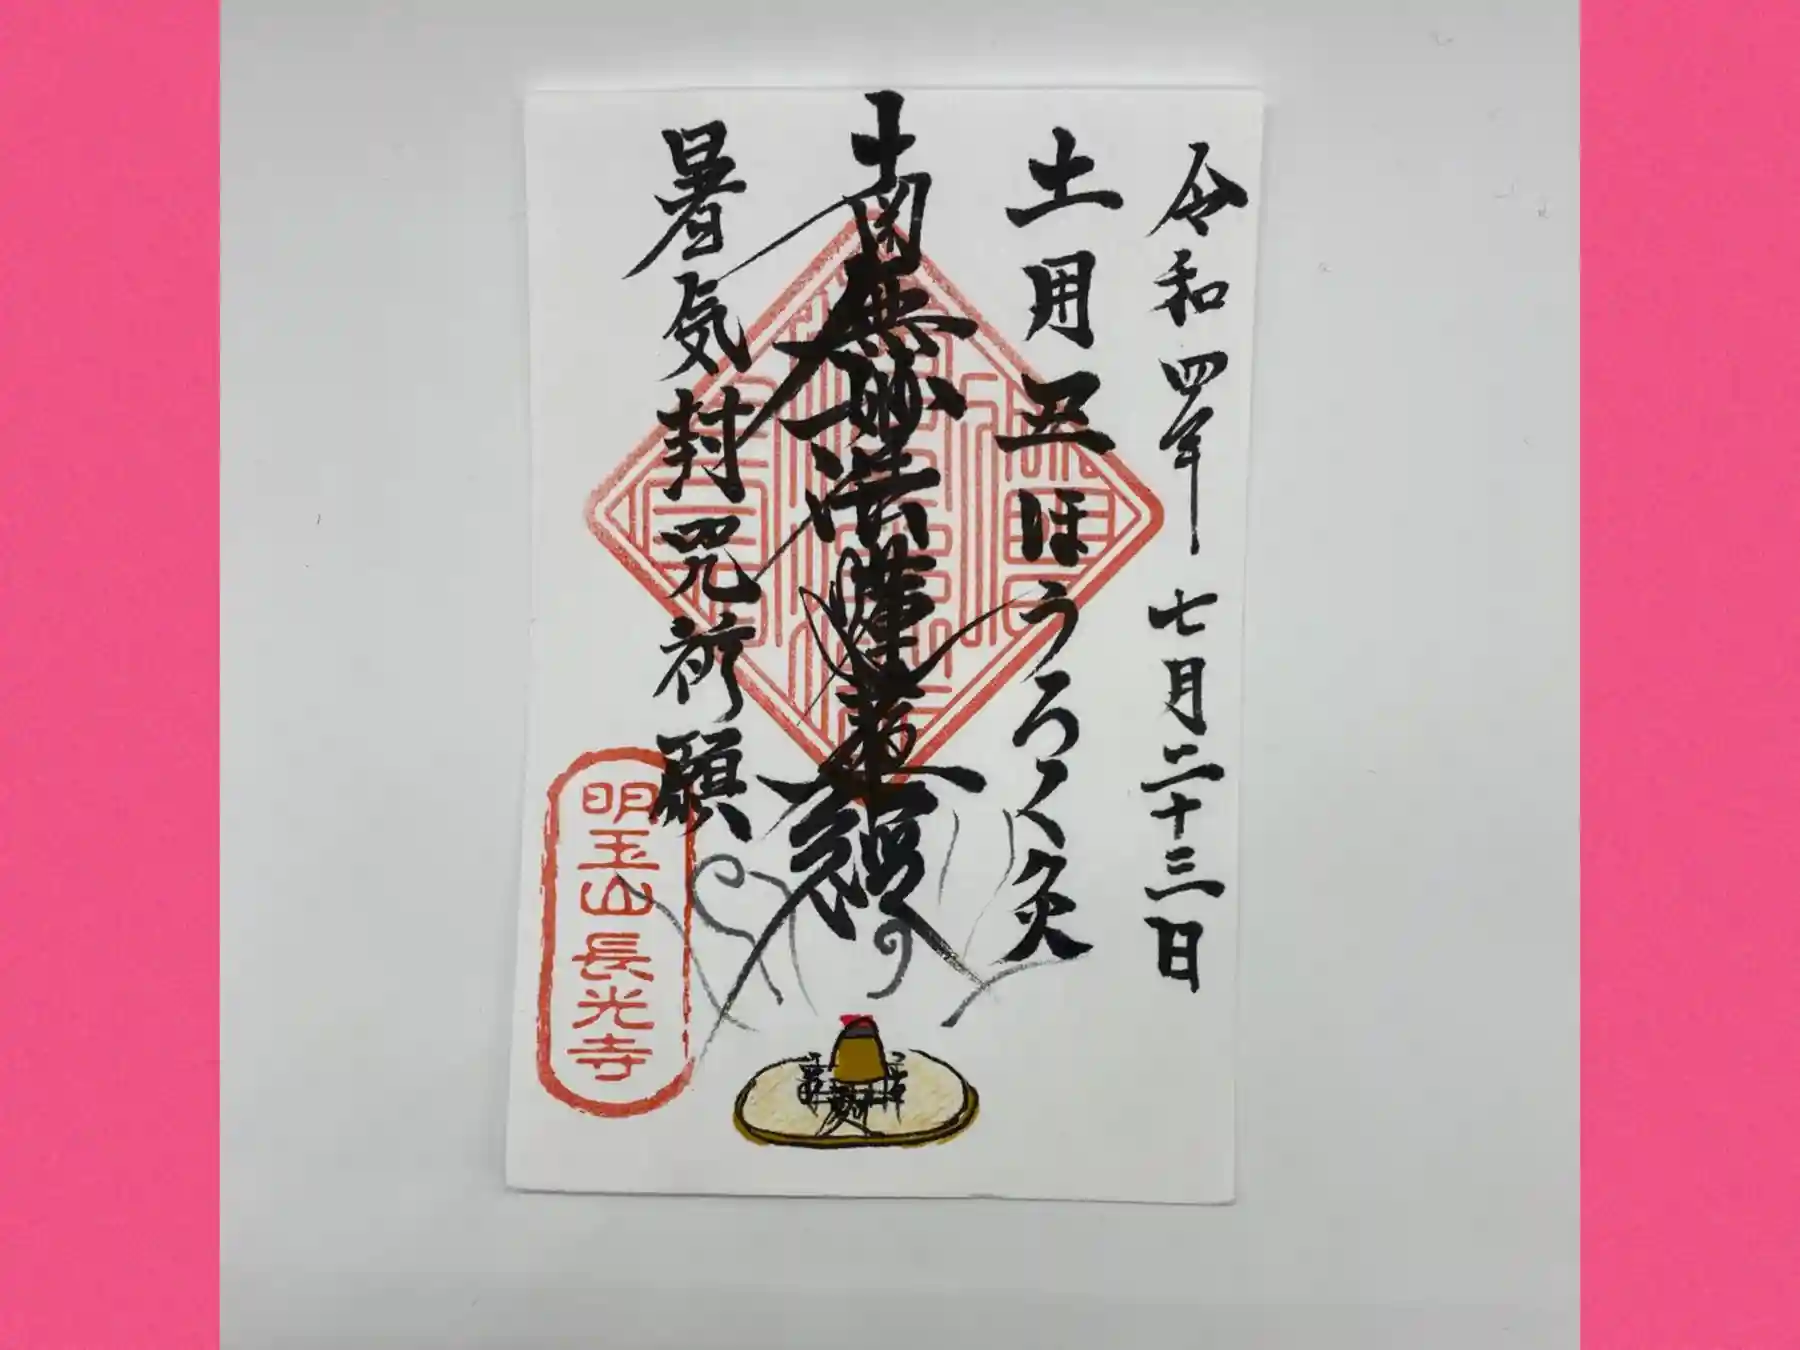 令和四年七月二十三日
土用丑ほうろく灸
南無妙法蓮華経
暑気封咒祈願
明玉山長光寺